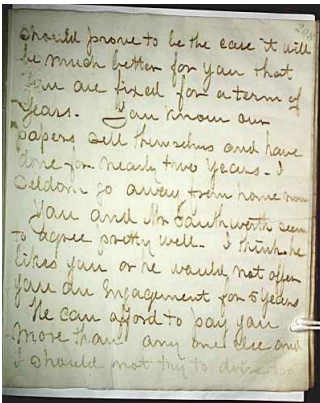 should prove to be the case it will
be much better for you that
you are fixed for a term of
years. You know our
papers sell themselves and have
done for nearly two years. I
seldom go away from home now
You and Mr Southworth seem
to agree pretty well. I think he
likes you or he would not offer
you an Engagement for 5 years
He can afford to pay you
more than any one else and
I should not try to drive too